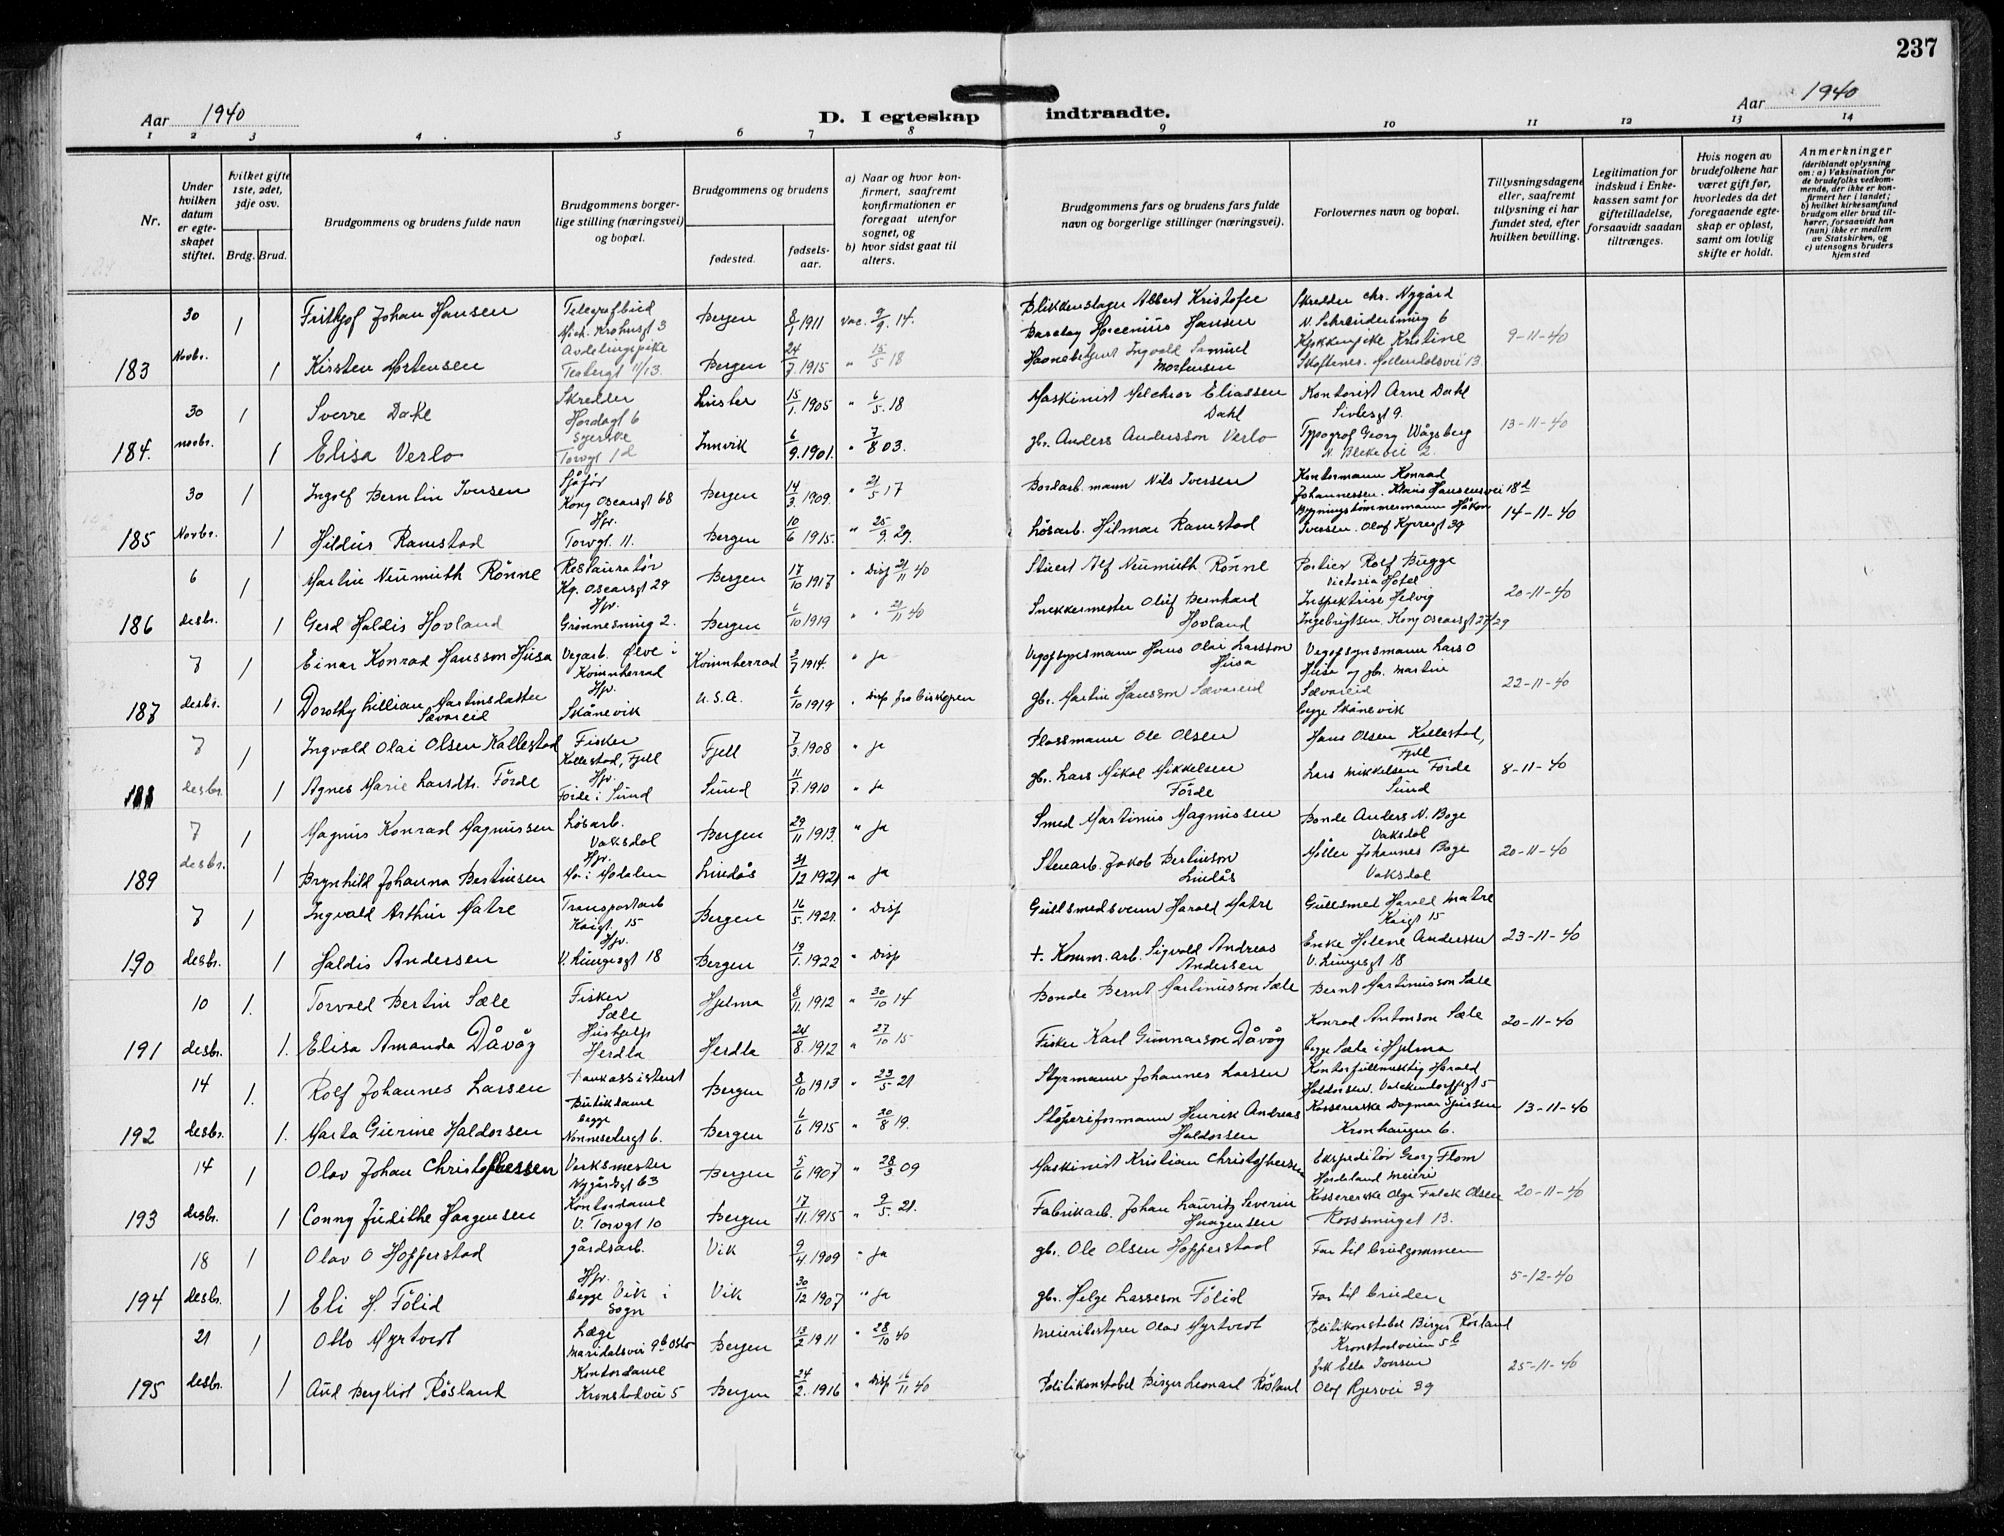 237
Aar 1940
D. I egteskap indtraadte.
Aar 1940
1 2 3 4 5 6 7 8 9 10 11 12 13 14
Nr.
Under hvilken datum er egteskapet stiftet.
hvilket gifte 1ste, 2det, 3dje osv.
Brdg. Brud.
Brudgommens og brudens fulde navn
Brudgommens borgerlige stilling (næringsvei) og bopæl.
Brudgommens og brudens
fødested.
fødselsaar.
a) Naar og hvor konfirmert, saafremt konfirmationen er foregaat utenfor sognet, og
b) hvor sidst gaat til alters.
Brudgommens fars og brudens fars fulde navn og borgerlige stillinger (næringsvei).
Forlovernes navn og bopæl.
Tillysningsdagene eller, saafremt tillysning ei har fundet sted, efter hvilken bevilling.
Legitimation for indskud i Enkekassen samt for giftetilladelse, forsaavidt saadan tiltrænges.
Hvis nogen av brudefolkene har været gift før, hvorledes da det foregaaende egteskap er opløst, samt om lovlig skifte er holdt.
Anmerkninger
(deriblandt oplysning om: a) Vaksination for de brudefolks vedkommende, der ikke er konfirmert her i landet;
b) hvilket kirkesamfund brudgom eller brud tilhører, forsaavidt han (hun) ikke er medlem av Statskirken, og
c) utensogns bruders hjemsted
30 1 Frithjof Johan Hansen Telegrafbud Mich. Krohnsgt 3 Bergen 8/1 1911 Vac. 9/9. 14. Blikkenslager Albert Kristofer Hansen Skredder Chr. Nygård
183 Novbr. 1 Kirsten Mortensen Teatergt 11/13. Bergen 24/7. 1915 " 15/5 18 Ingvald Samuel Mortensen Kristine Møllendalsvei 13 9-11-40
30 1 Sverre Dahl Skredder Hordagt 6 Luster 15/1. 1905 " 6/5. 18 Maskinist Melchior Eliassen Dahl Kontorist Arne Dahl
184. novbr. 1 Elisa Verlo Syerske Torvgt 1d Innvik 6/9. 1901. " 7/8 03. gbr. Anders Andersson Verlo Typograf Georg Vågsberg 13-11-40
30 1 Ingolf Berntin Iversen Sjåfør Kong Oscarsgt 68 Bergen 14/3 1909. " 21/5 17 Bordarb.mann Nils Iversen Kontormann Konrad Johannessen. Klaus Hansensvei 18d
185 Novbr. 1 Hildus Ramstad Hpr. Torvgt. 11. Bergen 10/6 1915. " 25/9. 29. Løsarb. Hilmar Ramstad Bygningstømmermann Håkon Iversen. Olaf Kyrresgt 39 14-11-40
6 1 Martin Neumuth Rønne Restauratør Kg. Oscarsgt 29 Bergen 17/10 1917 " Disp 21/11 40 Stuert Alf Neumuth Rønne Portier Rolf Bugge Victoria Hotel
186 desbr. 1 Gerd Haldis Hovland Hpr. Grønnesmug 2. Bergen 6/10 1919 " " 21/11 40 Snekkermester Oluf Bernhard Hovland Inspektrise Helvig Ingebrigtsen. Kong Oscarsgt 27/29 20-11-40
7 1 Einar Konrad Hansson Husa Vegarb. Ølve i Kvinnherrad Kvinnherrad 3/7 1914. " ja Vegopsynsmann Hans Olai Larsson Husa Vegopsynsmann Lars O Husa og gbr. Martin
187 desbr. 1 Dorothy Lillian Martinsdatter Sævareid Hpr. Skånevik U.S.A. 6/10 1919 " disp fra biskopen gbr. Martin Hansson Sævareid Sævareid begge Skånevik 22-11-40
7 1 Ingvald Olai Olsen Kallestad Fisker Kallestad, Fjell Fjell 7/3. 1908 " ja Plassmann Ole Olsen Hans Olsen Kallestad, Fjell
188 desbr. 1 Agnes Marie Larsdtr. Förde Hpr. Förde i Sund Sund 11/7. 1910 " ja gbr. Lars Mikal Mikkelsen Förde Lars Mikkelsen Förde Sund 8-11-40
7 1 Magnus Konrad Magnussen Løsarb. Vaksdal Bergen 29/11 1913. " ja Smed Martinus Magnussen Bonde Anders N. Boge Vaksdal
189 desbr. 1 Brynhild Johanna Bertinsen Hpr. Mo i Modalen Lindås 31/12 1921 " ja Stenarb. Jakob Bertinson Lindås Møller Johannes Boge Vaksdal 20-11-40
7 1 Ingvald Arthur Matre Transportarb Kaigt. 15 Bergen 16/5. 1921. " Disp Gullsmedsvenn Harald Matre Gullsmed Harald Matre Kaigt 15
190 desbr. 1 Haldis Andersen Hpr. V. Muregt 18 Bergen 19/1. 1922 " Disp +. Komm. arb. Sigvald Andreas Andersen Enke Helene Andersen 18 23-11-40
10 1. Torvald Bertin Sæle Fisker Sæle Hjelma 8/11. 1912 " 30/10 14 Bonde Bernt Martinusson Sæle Bernt Martinusson Sæle
191 desbr. 1. Elisa Amanda Dåvåg Hushjelp Herdla Herdla 24/8. 1912 " 27/10 15 Fisker Karl Gunnarson Dåvåg Konrad Antonson Sæle begge Sæle i Hjelma 20-11-40
14 1. Rolf Johannes Larsen Bankassistent Bergen 8/10 1913 " 23/5 21 Styrmann Johannes Larsen Kontorfullmektig Harald Haldorsen.
192 desbr. 1. Marta Gurine Haldorsen Butikdame begge Nonnesetergt 6. Bergen 6/6 1915 " 30/8 19. Støperiformann Henrik Andreas Haldorsen Kassererske Dagmar Kronhaugen 6. 13-11-40
14 1 Olav Johan Christophersen Verksmester Nygårdsgt 63 Bergen 5/6 1907 " 28/3 09 Maskinist Kristian Christophersen Ekspeditør Georg Flom Hordaland Meieri
193 desbr. 1 Conny Judithe Haagensen Kontordame V. Torvgt 10 Bergen 17/11. 1915 " 9/5. 21. Fabrikarb. Johan Lauritz Severin Haagensen Kassererske Olga Falck Olsen Rossmuget 13. 20-11-40
18 1 Olav O Hopperstad gårdsarb. Vik 9/4 1909 " ja gbr. Ole Olsen Hopperstad Far til brudgommen
194 desbr. 1 Eli H. Fölid Hpr. begge Vik i Sogn Vik 30/12 1907 " ja gbr. Helge Lasseson Fölid Far til bruden 5-12-40
21 1 Otto Myrtvedt Læge Maridalsvei 9b Oslo Bergen 13/2 1911 " 28/10 40 Meieribestyrer Olav Myrtvedt Politikonstabel Birger Røsland Kronstadveien 5
195 desbr. 1 Aud Bergliot Røsland Kontordame Kronstadvei 5 Bergen 24/2. 1916 " Disp 16/11 40 Politikonstabel Birger Leonard Røsland frk Ella Iversen Olaf Ryesvei 39 25-11-40